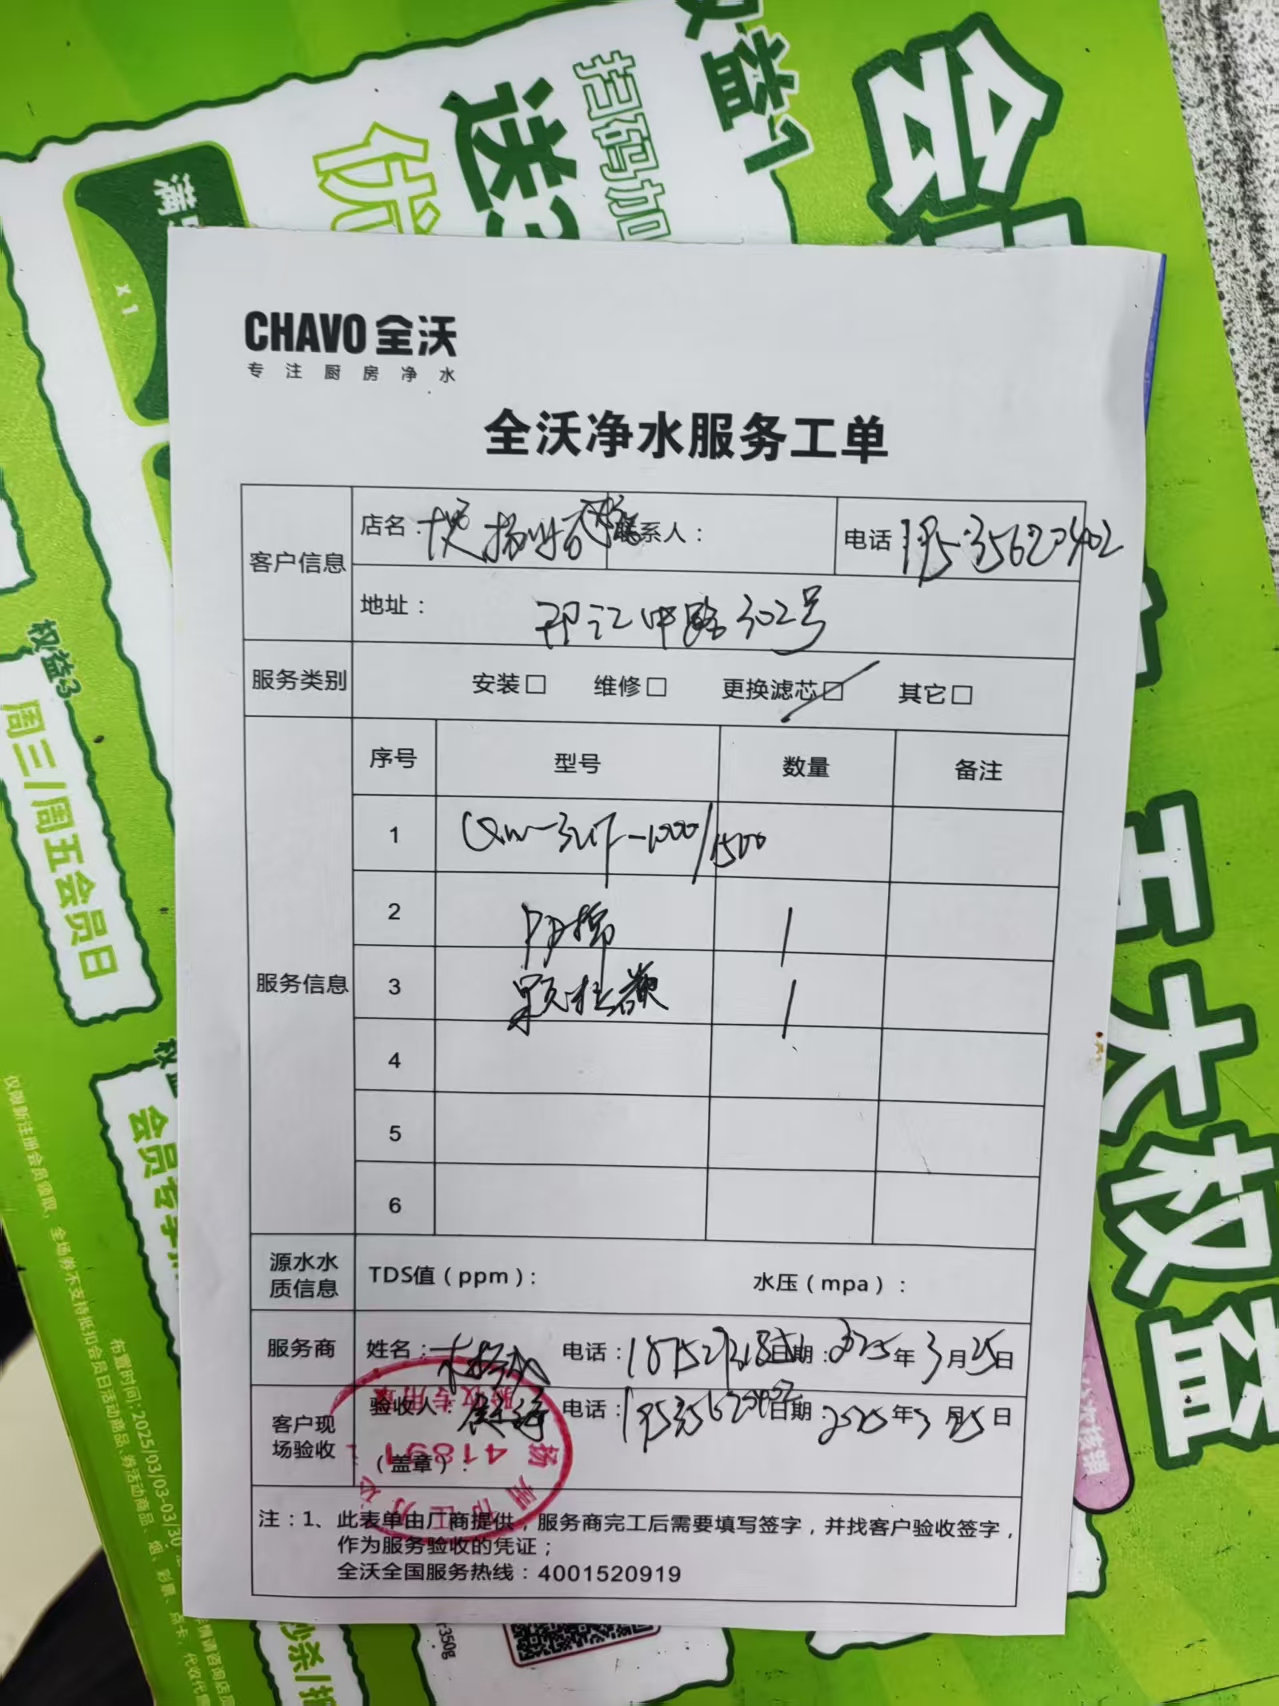 权益1
会
扫码加
送3
优
满
x1
CHAVO 全沃
专注厨房净水
全沃净水服务工单
客户信息
店名：
联系人：
电话 19535620402
地址： 邗江中路302号
服务类别 安装□ 维修□ 更换滤芯□ 其它□
服务信息
序号 型号 数量 备注
1 QW-3UF-1000/1500
2 PP棉 1
3 颗粒炭 1
4
5
6
源水水质信息 TDS值（ppm）： 水压（mpa）：
服务商 姓名： 电话： 日期：2025年3月25日
客户现场验收 验收人： 电话：19535620402 日期：2025年3月25日
（盖章）：
验收专用章
41891
扬州市
注：1、此表单由厂商提供，服务商完工后需要填写签字，并找客户验收签字，
作为服务验收的凭证；
全沃全国服务热线：4001520919
权益3
周三/周五会员日
会员专享
五大权益
仅限新注册会员领取，全场券不支持抵扣会员日活动商品
布置时间：2025/03/03-03/30
秒杀/
350g